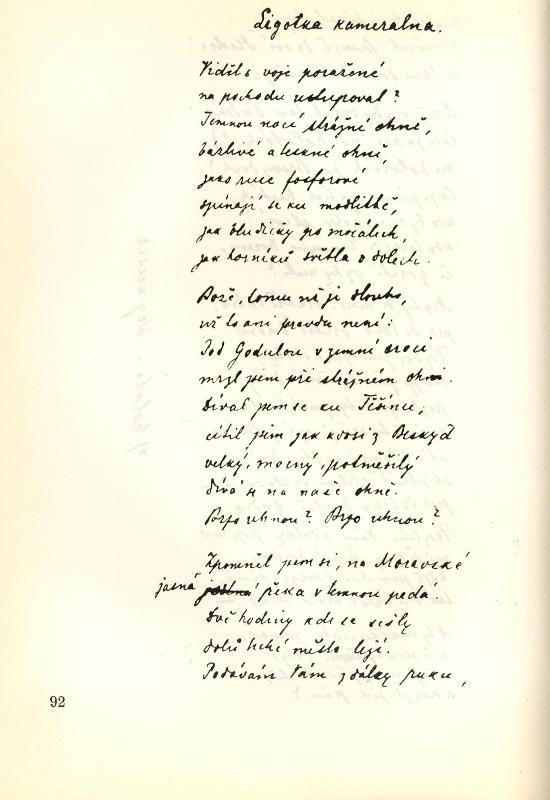 Ligotka kameralna.
Viděls voje poražené
na pochodu ustupovat?
Temnou nocí strážné ohně,
bázlivé a teskné ohně,
jako ruce fosforové
spínají se ku modlitbě,
jak bludičky po močálech,
jak horníků světla v dolech.
Bože, tomu není dlouho,
už to ani pravda není:
Pod Godulou v zimní noci
mrzl jsem při strážném ohni.
Díval jsem se ku Těšínu,
cítil jsem jak kdosi z Beskyd
velký, mocný, potměšilý
dívá se na naše ohně.
Brzo uhnou? Brzo uhnou?
Vzpomněl jsem si, na Moravské
jasná řeka v temnou padá.
Dvě hodiny kde se sešly
dolů tiché město leží.
Podávám Vám z dálky ruku,
92